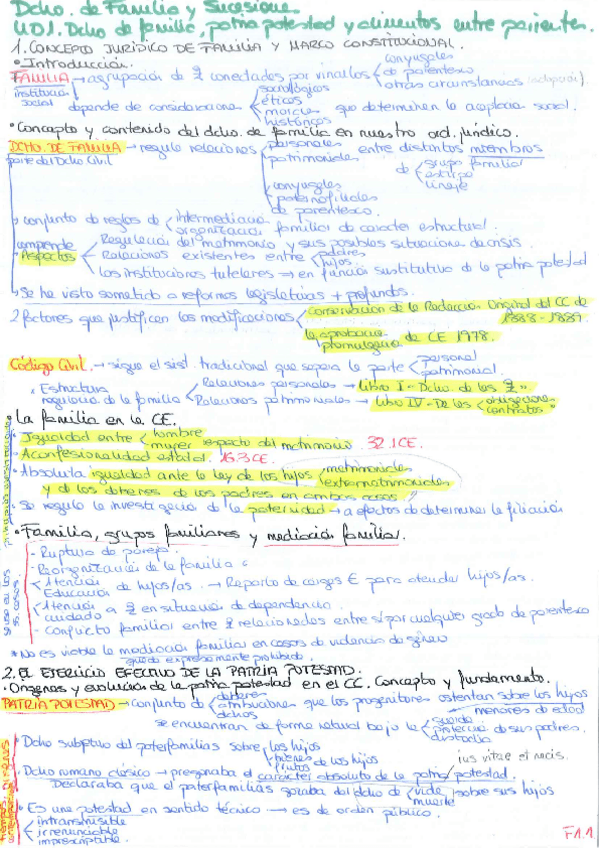 Dcho. de Familia y Sucesiones
UD1. Dcho de familia, patria potestad y alimentos entre parientes.
1. CONCEPTO JURÍDICO DE FAMILIA Y MARCO CONSTITUCIONAL.
• Introducción.
FAMILIA → agrupación de conectados por vínculos conyugales
de parentesco
otras circunstancias (adopción).
institución social
depende de consideraciones sociológicas
éticas
morales
históricas
que determinen la aceptación social.
• Concepto y contenido del dcho. de familia en nuestro ord. jurídico.
DCHO. DE FAMILIA → regula relaciones personales
patrimoniales
entre distintos miembros
parte del Dcho Civil
de grupo familiar
estirpe
linaje
conyugales
paternofiliales
de parentesco.
conjunto de reglas de intermediación
organización
familiar de caracter estructural.
comprende
Aspectos
Regulación del matrimonio y sus posibles situaciones de crisis.
Relaciones existentes entre padres
hijos.
Las instituciones tutelares → en función sustitutiva de la patria potestad
Se ha visto sometido a reformas legislativas + profundas.
2 factores que justifican las modificaciones
Conservación de la Redacción Original del CC de 1888-1889.
la aprobación
promulgación
de CE 1978.
Código Civil. → sigue el sist. tradicional que separa la parte personal
patrimonial.
Estructura
regulación de la familia
Relaciones personales → Libro I - Dcho. de las
Relaciones patrimoniales → Libro IV - De las obligaciones
contratos"
• La familia en la CE.
• Igualdad entre hombre
mujer
respecto del matrimonio 32.1 CE.
• Aconfesionalidad estatal. 16.3 CE.
• Absoluta igualdad ante la ley de los hijos matrimoniales
extramatrimoniales
y de los deberes de los padres en ambos casos"
• Se regula la investigación de la paternidad → a efectos de determinar la filiación
principios constitucionales
• Familia, grupos familiares y mediación familiar.
se uso en los ss. casos
- Ruptura de pareja.
- Reorganización de la familia
Atención
Educación
de hijos/as. → Reparto de cargas € para atender hijos/as.
Atención
cuidado
a en situación de dependencia.
- Conflicto familiar entre relacionados entre sí por cualquier grado de parentesco
* No es viable la mediación familiar en casos de violencia de género
queda expresamente prohibida.
2. EL EJERCICIO EFECTIVO DE LA PATRIA POTESTAD.
• Orígenes y evolución de la patria potestad en el CC. Concepto y fundamento.
PATRIA POTESTAD → conjunto de deberes
atribuciones
dchos
que los progenitores ostentan sobre los hijos
menores de edad
se encuentran de forma natural bajo la guarda
protección
de sus padres.
• Dcho subjetivo del paterfamilias sobre los hijos
bienes
frutos
de los hijos
ius vitae et necis.
• Dcho romano clásico → pregonaba el carácter absoluto de la patria potestad.
Declaraba que el paterfamilias gozaba del dcho de vida
muerte
sobre sus hijos
• Es una potestad en sentido técnico → es de orden público.
intransmisible
irrenunciable
imprescriptible.
F1.1